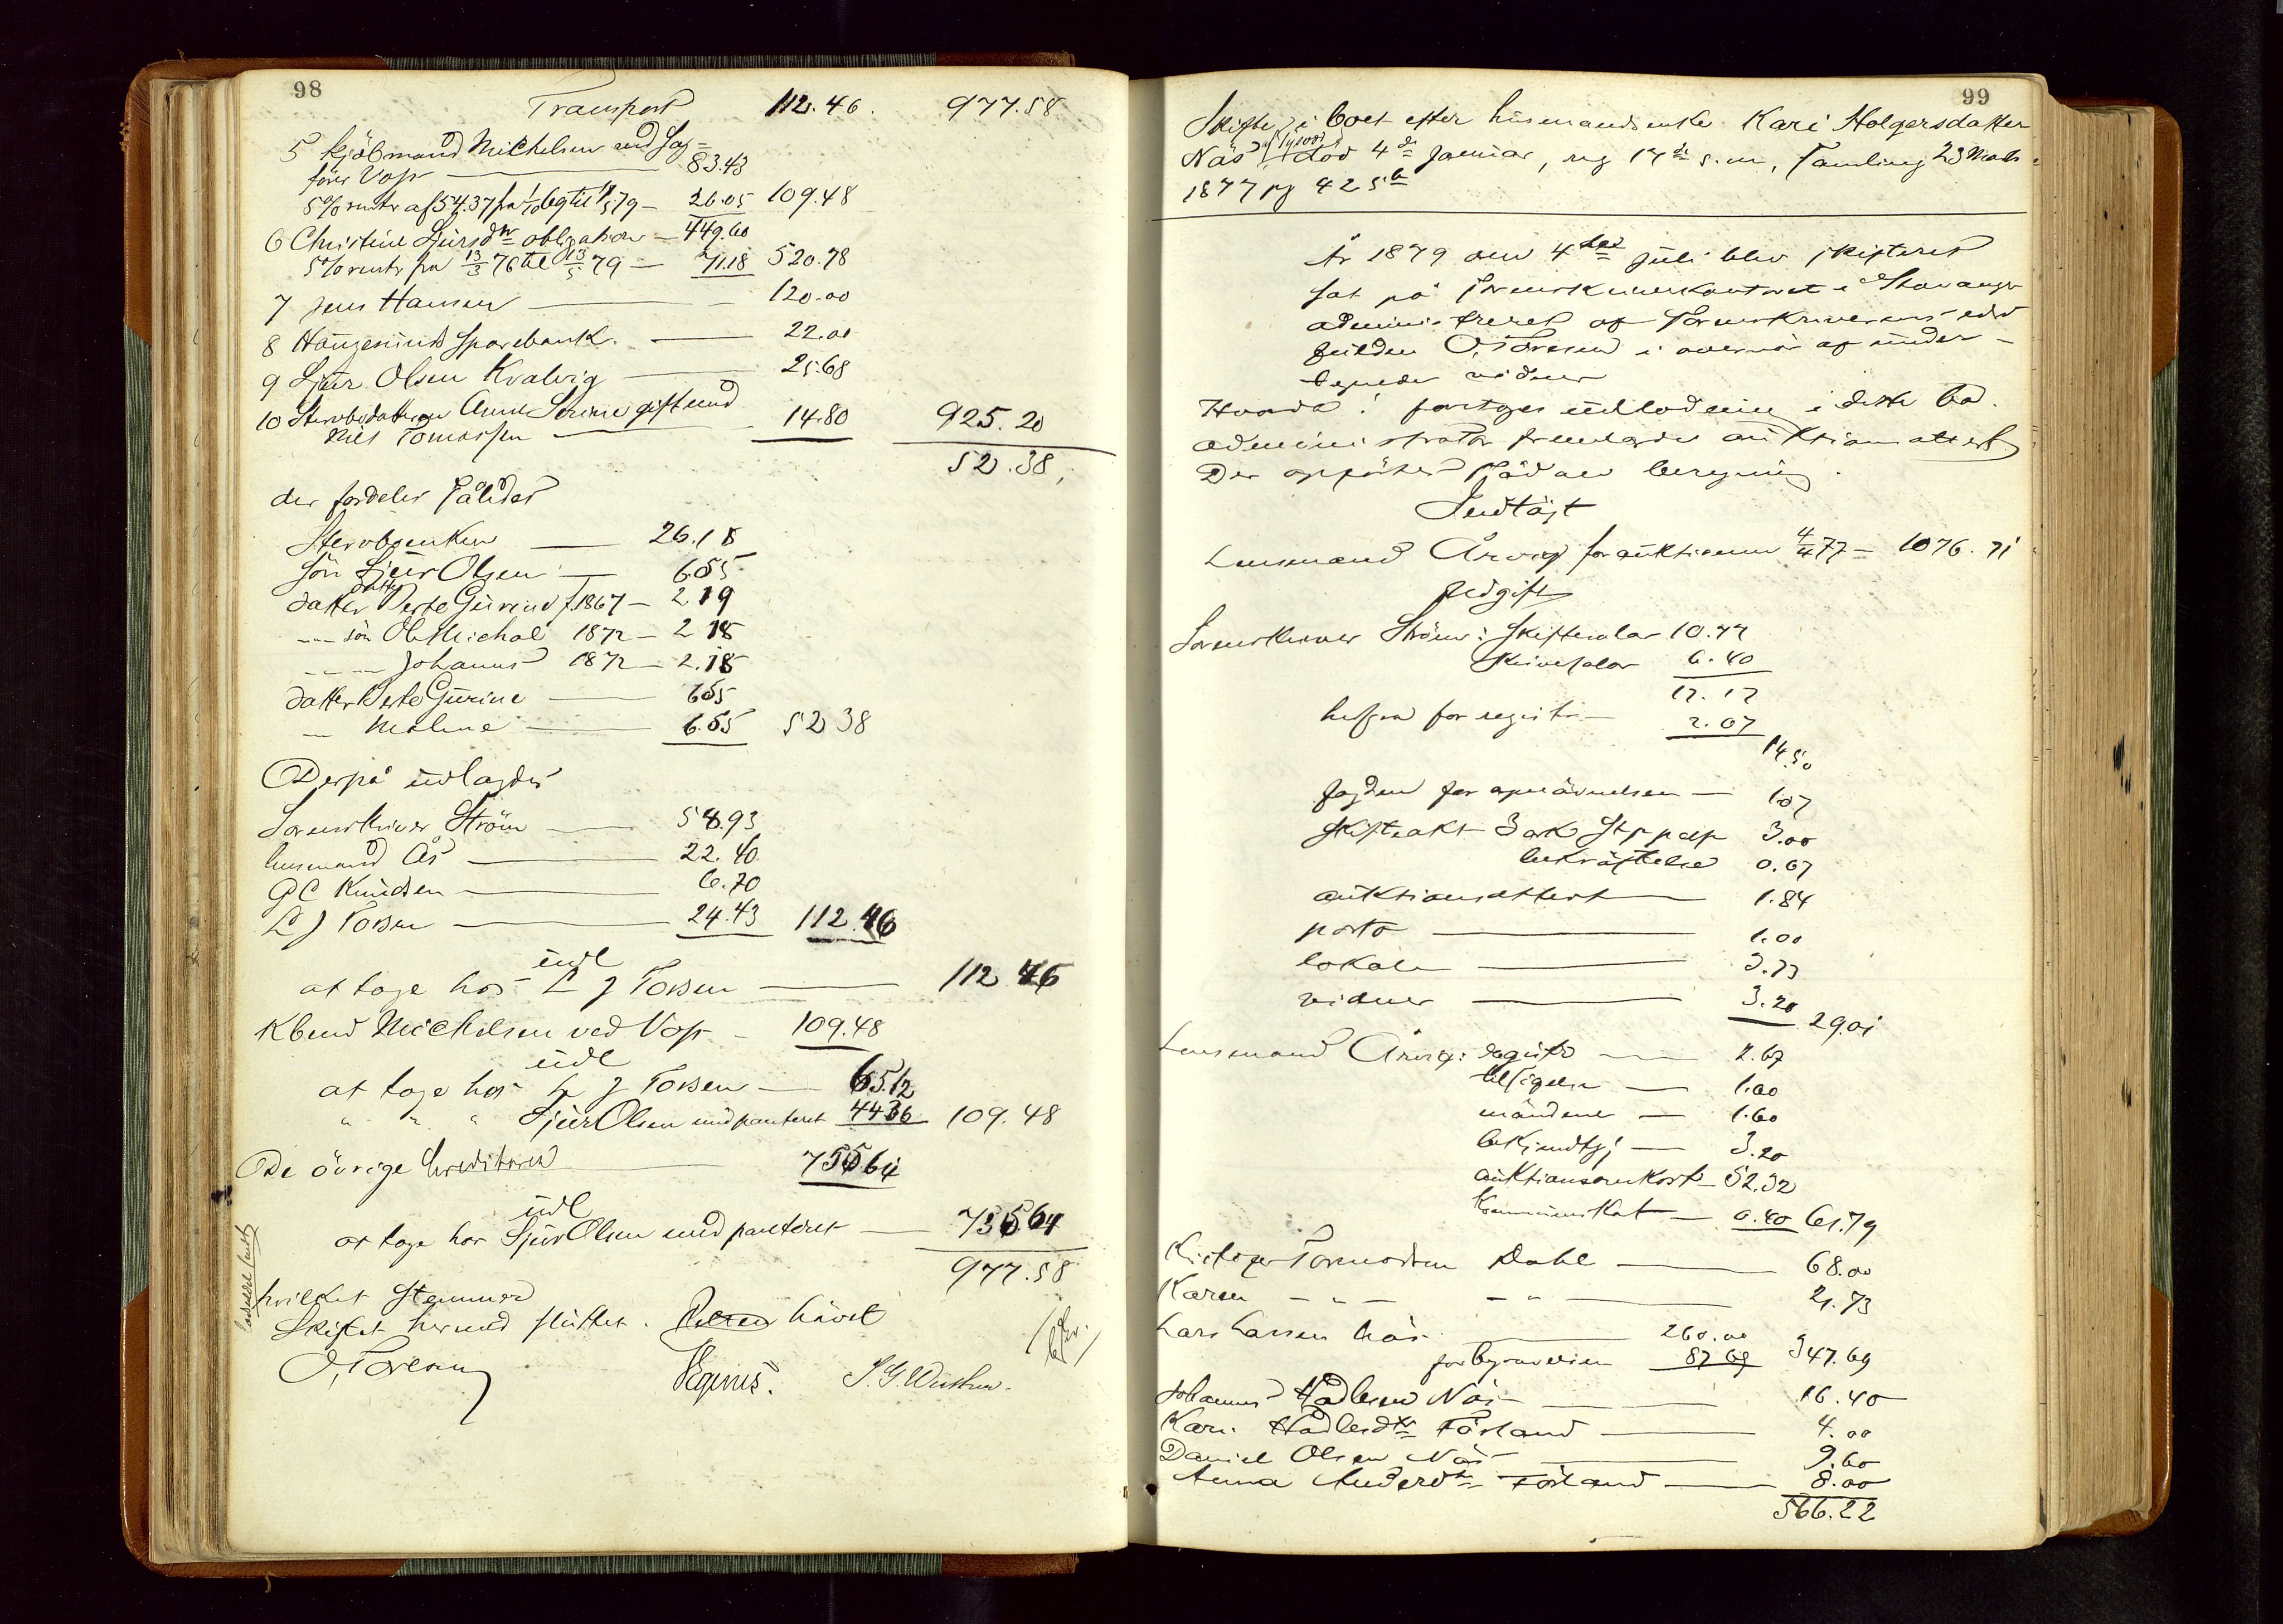 98
Transport 112.46. 977.58
5 kjöbmand Michelsen ved Sag=
förer Vop — 83.43
5% rente af 54.37 fra 1/10 69 til 1/5 79 — 26.05 109.48
6 Christine Sjursdtr obligation — 449.60
5% rente fra 13/3 76 til 13/5 79 — 71.18 520.78
7 Jens Hansen — 120.00
8 Haugesunds Sparebank — 22.00
9 Sjur Olsen Kvalvig — 25.68
10 Sterbodatteren Anne Serine gift med
Nils Tomassen — 14.80 925.20
52.38
der fordeles således
Stervboenken — 26.18
sön Sjur Olsen — 6.55
datter datter Berte Gurine f. 1867 — 2 19
— sön Ole Michal 1872 — 2 18
— — Johannes 1872 — 2.18
datter Berte Gurine — 655
— Maline — 6.55 52 38
Derpå udlagdes
Sorenskriver Ström — 58.93
lensmand Ås — 22.40
G C Knudsen — 6.70
L J Tossen — 24.43 112.46
udl
at tage hos L J Tossen — 112 46
Kbmd Michelsen ved Vop — 109.48
udl
at tage hos L J Tossen — 65.12
" " " Sjur Olsen mod panteret 4436 109.48
De övrige kreditorer — 755 64
udl
at tage hos Sjur Olsen mod panteret — 755 64
977.58
hvilket stemmer
Skiftet hermed sluttet. hävet
O Toresen
Vegines. S. G. Westbu.
99
Skifte i boet efter husmandsenke Kari Holgersdatter
Näs i död 4de Januar, reg 17de s.m, Samling 23 Marts
1877 pg 425b
År 1879 den 4de juli blev skifteret
sat på Sorenskriverkontoret i Stavanger
administreret af Sorenskriverens edsv
fuldm O. Toresen i overvär af under-
tegnede vidner
Hvorda! foretages udlodning i dette bo.
administrator fremlagde auktionsattest
Der opförtes sådan beregning.
Indtägt
Lensmand Årvig for auktionen 4/4 77 — 1076.71
Udgift
Sorenskriver Ström: skiftesalar 10.77
skrivesalar 6.40
17.17
for registr — 2.07
14.50
fogden for opnävnelsen — 1.07
skifteakt 3 ark St. papp 3.00
bekräftelse 0.67
auktionsattest — 1.84
porto — 1.00
lokale — 3.73
vidner — 3.20 29.01
Lensmand Årvig: registr — 2.67
tilsigelse — 1.00
mändene — 1.60
bekjendtgj — 3.20
auktionsomkost — 52.92
Kommuneskat — 0.40 61.79
Tormodsen Dahl — 68.00
Karen — " — — " — 21.73
Lars Larsen Näs — 260.00
for begravelsen 87 69 347.69
Johannes Hadlesen Näs — 16.40
Kari Hadlesdtr Förland — 4.00
Daniel Olsen Näs — 9.60
Anna Andersdtr Förland — 8.00
566.22